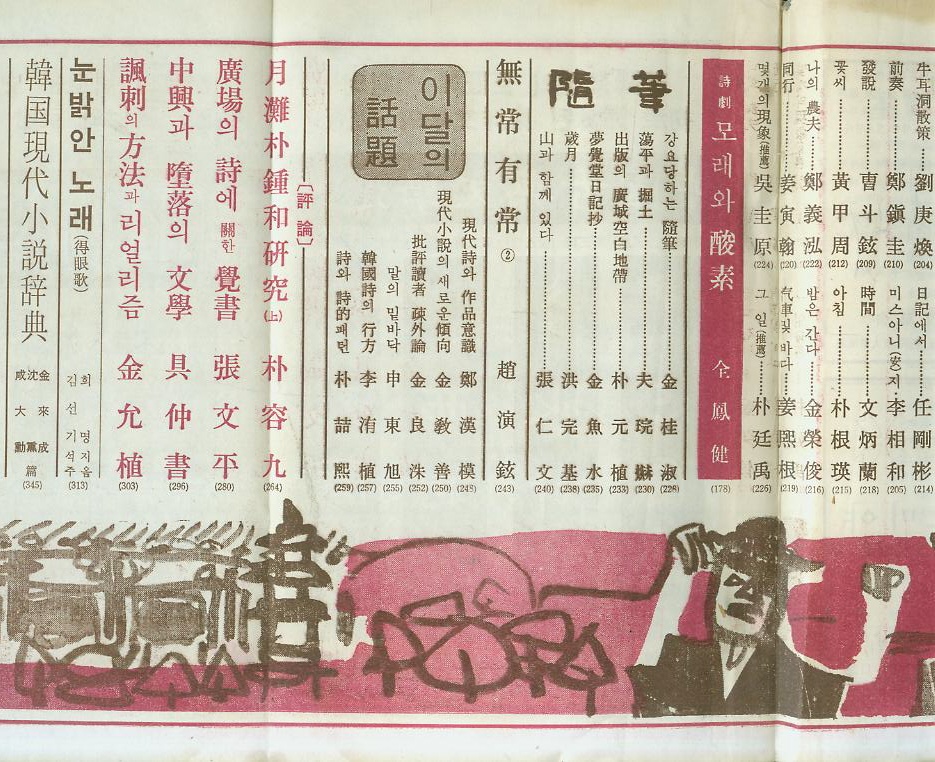 牛耳洞散策 劉庚煥 (204)
日記에서 任剛彬 (214)
前奏 鄭鎭圭 (210)
미스아니(李)지 李相和 (205)
發説 曺斗鉉 (209)
時間 文炳蘭 (218)
꽃씨 黃甲周 (212)
아침 朴根瑛 (215)
나의 農夫 鄭義泓 (222)
밤은 간다 金榮俊 (216)
同行 姜寅翰 (220)
汽車및 바다 姜熙根 (219)
몇개의現象(推薦) 吳圭原 (224)
그 일(推薦) 朴廷禹 (226)
詩劇 모래와 酸素 全鳳健 (178)
隨筆
강요당하는 隨筆 金桂淑 (228)
蕩平과 掘土 夫琓爀 (230)
出版의 廣域空白地帶 朴元植 (233)
夢覺堂日記抄 金魚水 (235)
歲月 洪完基 (238)
山과 함께 있다 張仁文 (240)
無常有常 ② 趙演鉉 (243)
이달의 話題
現代詩와 作品意識 鄭漢模 (248)
現代小説의 새로운傾向 金敎善 (250)
批評讀者 疎外論 金良洙 (252)
말의 밑바닥 申東旭 (255)
韓國詩의 行方 李洧植 (257)
詩와 詩的패턴 朴喆熙 (259)
〔評論〕
月灘朴鍾和硏究(上) 朴容九 (264)
廣場의 詩에 關한 覺書 張文平 (280)
中興과 墮落의 文學 具仲書 (296)
諷刺의 方法과 리얼리즘 金允植 (303)
눈밝안 노래(得眼歌) 김선기 석주 희명 지음 (313)
韓国現代小説辞典 金來成 沈熏 咸大勳 篇 (345)